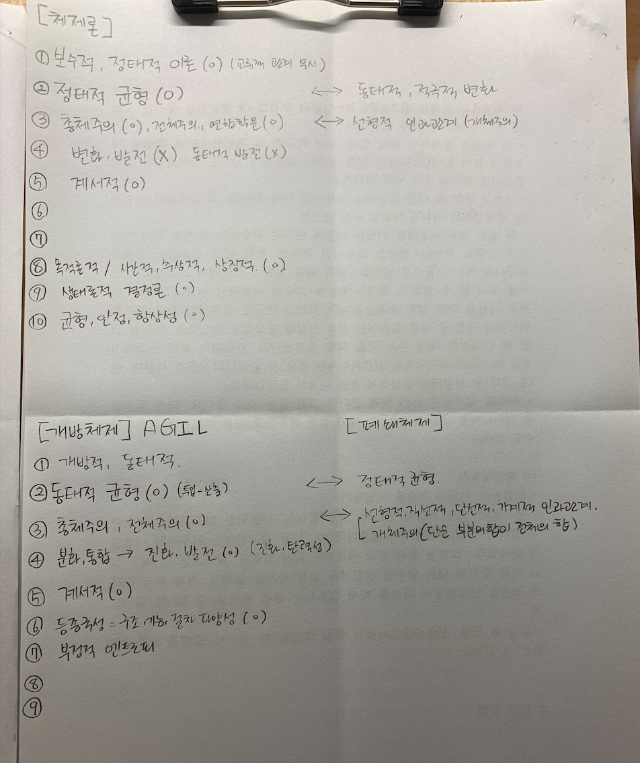 [체제론]
① 보수적, 정태적 이론 (o) (교류적 관계 무시)
② 정태적 균형 (O) ↔ 동태적, 적극적 변화
③ 총체주의 (o), 전체주의, 연합학문 (o) ↔ 선형적 인과관계 (개체주의)
④ 변화·발전 (X) 동태적 발전 (X)
⑤ 계서적 (o)
⑥
⑦
⑧ 목적론적 / 시간적, 추상적, 상징적. (o)
⑨ 생태론적 결정론 (o)
⑩ 균형, 안정, 항상성 (o)
[개방체제] AGIL [폐쇄체제]
① 개방적, 동태적.
② 동태적 균형 (o) (투입-산출) ↔ 정태적 균형.
③ 총체주의, 전체주의 (o) ↔ 선형적, 직선적, 단선적, 인과관계.
개체주의 (단순 부분의 합이 전체의 합)
④ 분화, 통합 → 진화·발전 (o) (진화, 탄력성)
⑤ 계서적 (o)
⑥ 등종국성 = 구조, 절차 다양성 (o)
⑦ 부정적 엔트로피
⑧
⑨